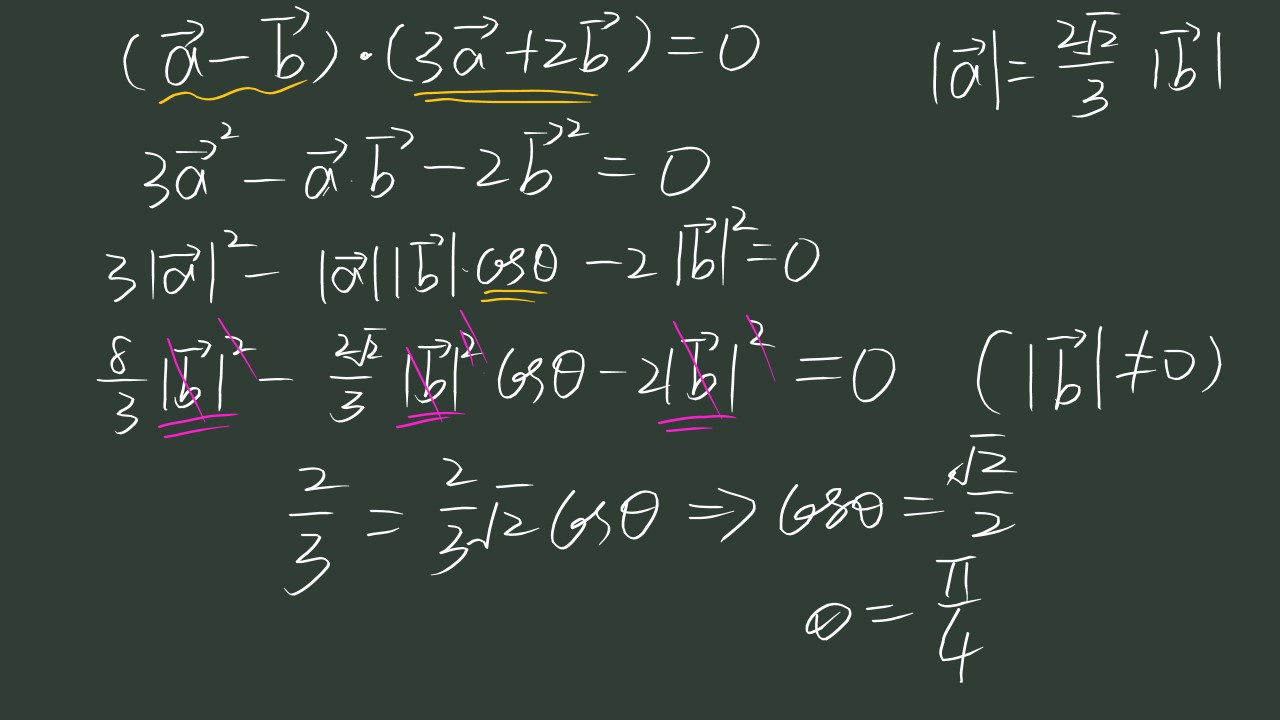 (a⃗ − b⃗)·(3a⃗ + 2b⃗) = 0
|a⃗| = 2√2/3 |b⃗|
3a⃗² − a⃗·b⃗ − 2b⃗² = 0
3|a⃗|² − |a⃗||b⃗|·cosθ − 2|b⃗|² = 0
8/3 |b⃗|² − 2√2/3 |b⃗|² cosθ − 2|b⃗|² = 0 (|b⃗| ≠ 0)
2/3 = 2/3 √2 cosθ ⇒ cosθ = √2/2
θ = π/4